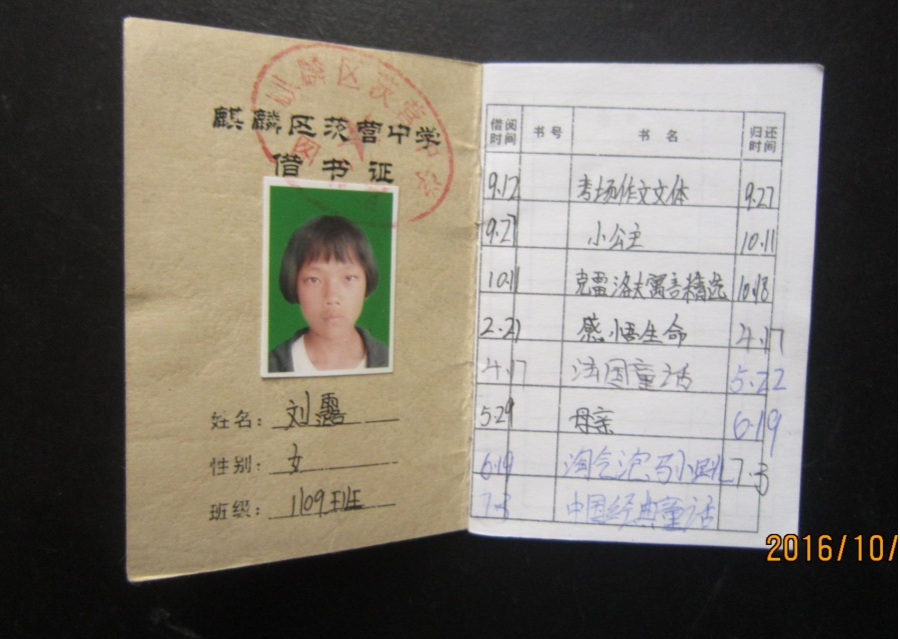 麒麟区茨营中学
借书证
姓名：刘露
性别：女
班级：1109班
借阅时间 书号 书名 归还时间
9.12 考场作文文体 9.27
9.27 小公主 10.11
10.11 克雷洛夫寓言精选 10.18
2.21 感悟生命 4.17
4.17 法国童话 5.22
5.29 母亲 6.19
6.19 淘气包马小跳 7.3
7.3 中国经典童话
2016/10/